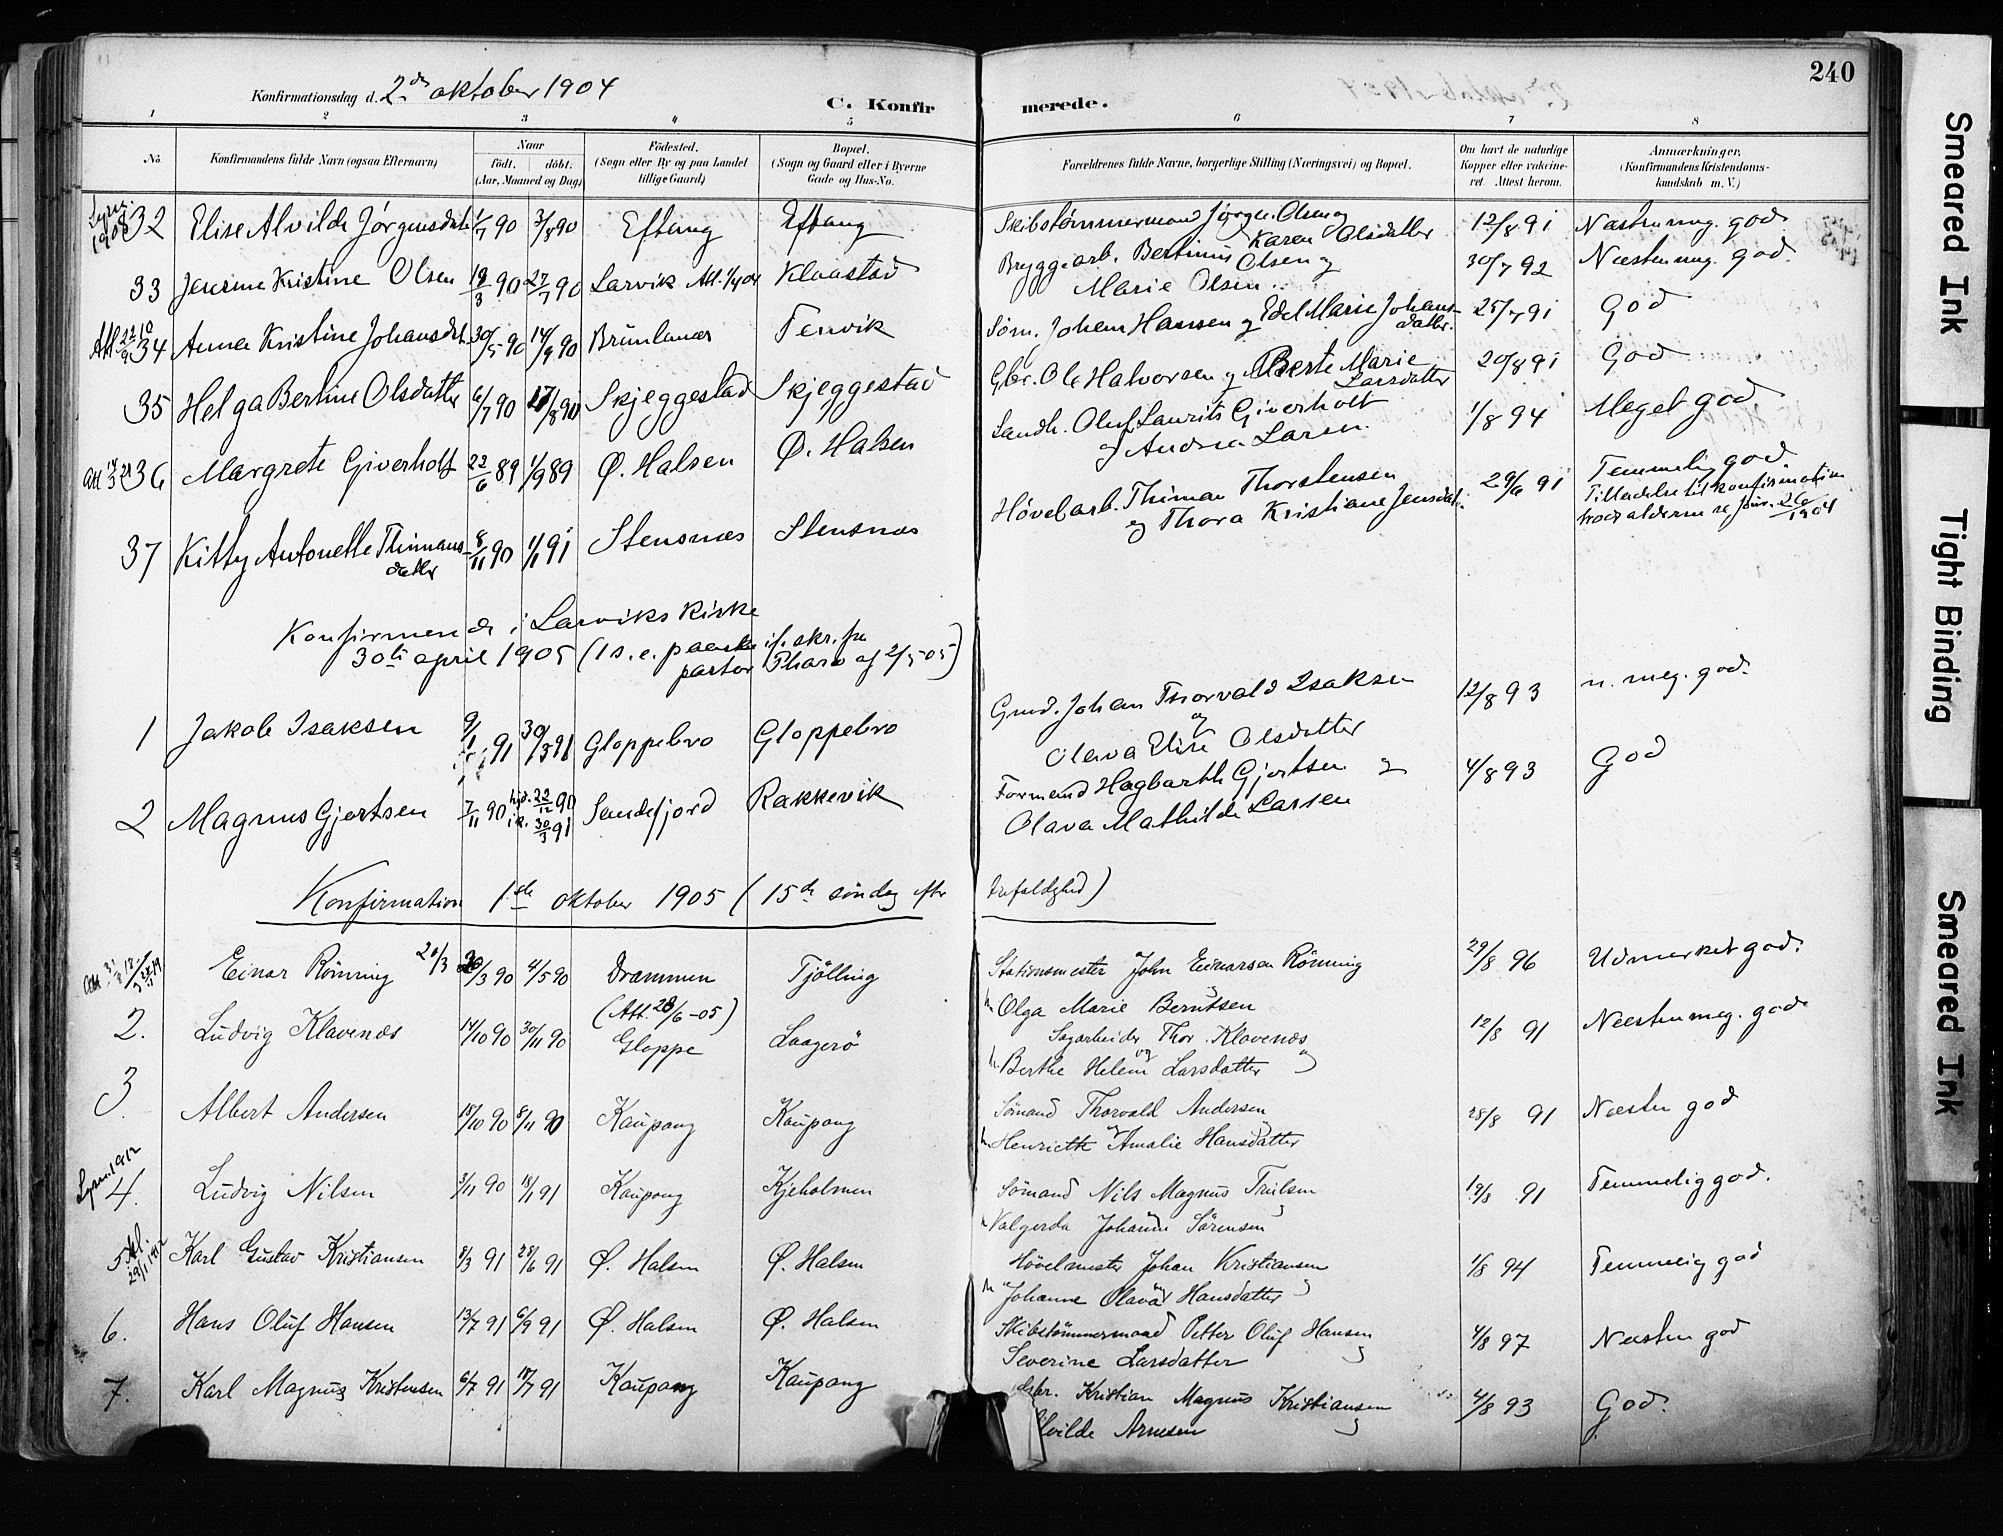 240
Konfirmationsdag d. 2den oktober 1904
C. Konfirmerede.
1 2 3 4 5 6 7 8
No. Konfirmandens fulde Navn (ogsaa Efternavn) Naar födt. döbt. (Aar, Maaned og Dag) Födested. (Sogn eller By og paa Landet tillige Gaard) Bopæl. (Sogn og Gaard eller i Byerne Gade og Hus-No. Forældrenes fulde Navne, borgerlige Stilling (Næringsvei) og Bopæl. Om havt de naturlige Kopper eller vaccineret. Attest herom. Anmærkninger. (Konfirmandens Kristendomskundskab m. V.)
32 Elise Alvilde Jörgensdat. 1/7 90 3/8 90 Eftang Eftang Skibstømmermand Jørgen Olsen og Karen Olsdatter 12/8 91 Næsten meg. god
33 Jensine Kristine Olsen 19/3 90 27/7 90 Larvik Klaastad Bryggearb. Bertinius Olsen og Marie Olsen 30/7 92 Næsten meg. god.
34 Anna Kristine Johansdat. 30/5 90 14/9 90 Brunlanæs Tenvik Søm. Johan Hansen og Edel Marie Johansdatter. 25/7 91 God
35 Helga Bertine Olsdatter 6/7 90 17/8 90 Skjeggestad Skjeggestad Gbr. Ole Halvorsen og Berte Marie Larsdatter 20/8 91 God
36 Margrete Giverholt 22/6 89 1/9 89 Ø. Halsen Ø. Halsen Landh. Oluf Laurits Giverholt og Andrea Larsen 1/8 94 Meget god
37 Kitty Antonette Thimansdatter 8/11 90 1/1 91 Stensnæs Stensnæs Høvelarb. Thiman Thorstensen og Thora Kristiane Jensdat. 29/6 91 Temmelig god
Tilladelse til konfirmation
hvad alderen se Jour. 26/1904
Konfirmerede i Larviks Kirke
30te april 1905 (1 s. e. paaske if. skr. fra
pastor Tharo af 2/5-05)
1 Jakob Isaksen 9/1 91 30/3 91 Gloppebro Gloppebro Grnd. Johan Thorvald Isaksen og Olava Elise Olsdatter 12/8 93 n. meg. god.
2 Magnus Gjertsen 7/11 90 hjd. 22/12 90 i k. 30/3 91 Sandefjord Rakkevik Formand Hagbarth Gjertsen og Olava Mathilde Larsen 4/8 93 God
Konfirmation 1ste oktober 1905 (15de söndag efter trefoldighed)
Einar Rönning 20/3 90 4/5 90 Drammen Tjölling Stationsmester John Einarsen Rönning 29/8 96 Udmerket god.
(Att. 28/6-05) h. Olga Marie Berntsen
2. Ludvig Klavenæs 14/10 90 30/11 90 Gloppe Laagerö Sagarbeider Thor Klavenæs 12/8 91 Næsten meg. god
h. Berthe Helene Larsdatter
3. Albert Andersen 18/10 90 8/11 90 Kaupang Kaupang Sömand Thorvald Andersen 28/8 91 Næsten god
h. Henriette Amalie Hansdatter
4. Ludvig Nilsen 3/11 90 18/1 91 Kaupang Kjeholmen Sömand Nils Magnus Trulsen 19/8 91 Temmelig god.
h. Valgerda Johanne Sörensen
5 Karl Gustav Kristiansen 8/3 91 28/6 91 Ø. Halsen Ø. Halsen Hövelmester Johan Kristiansen 1/8 94 Temmelig god
h. Johanne Olava Hansdatter
6. Hans Oluf Hansen 13/7 91 6/9 91 Ø. Halsen Ø. Halsen Skibstömmermand Petter Oluf Hansen 4/8 97 Næsten god
Severine Larsdatter
7. Karl Magnus Kristensen 6/7 91 19/7 91 Kaupang Kaupang Kristian Magnus Kristiansen 4/8 93 God.
Arnesen
Smeared Ink
Tight Binding
Smeared Ink